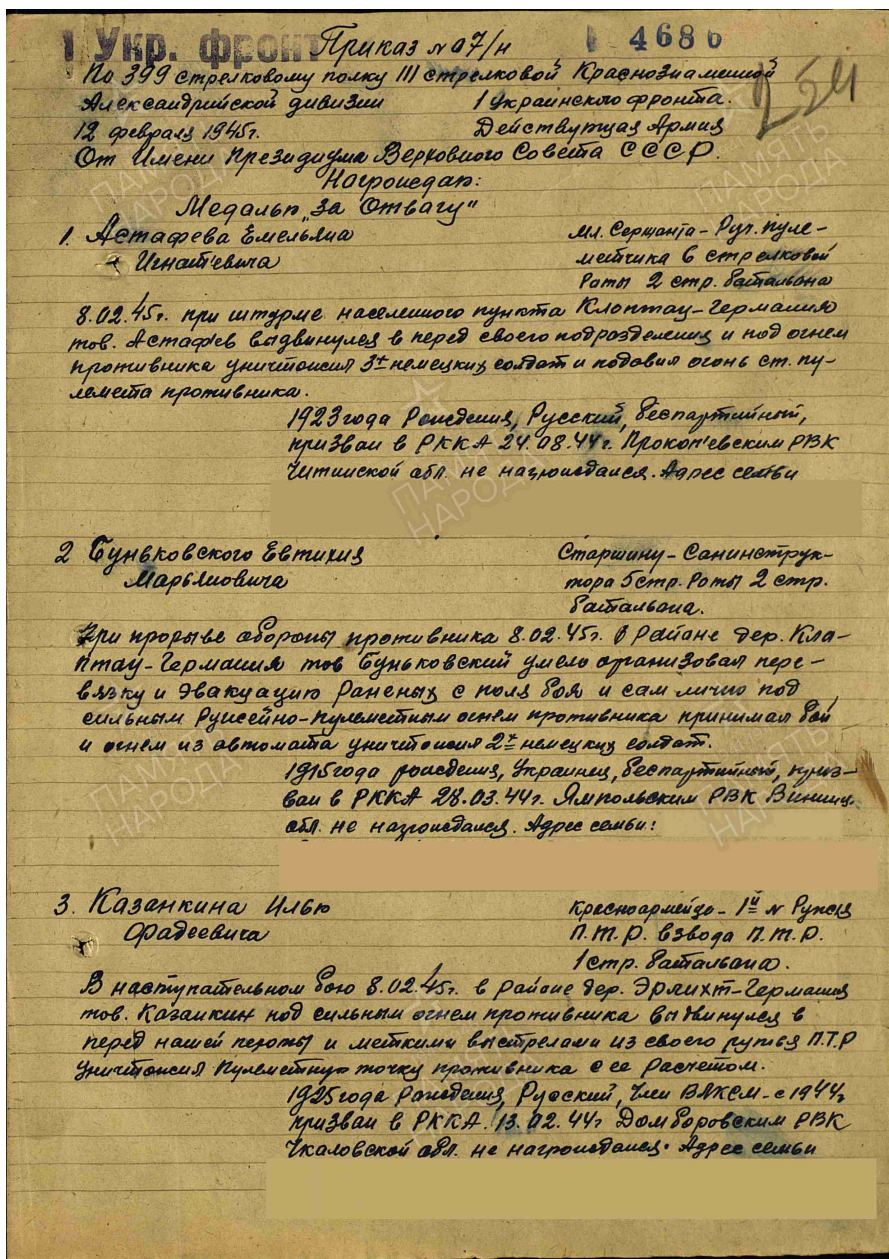 1 Укр. фронт
Приказ № 07/н
4686
254
По 399 стрелковому полку 111 стрелковой Краснознаменной
Александрийской дивизии 1 Украинского фронта.
12 февраля 1945г. Действующая Армия
От Имени Президиума Верховного Совета СССР.
Награждаю:
Медалью „За Отвагу"
1. Астафева Емельяна Мл. Сержанта - Руч. пуле-
Игнат'евича метчика 6 стрелковой
Роты 2 стр. батальона
8.02.45г. при штурме населенного пункта Клоптау-Германия
тов. Астаф'ев выдвинулся в перед своего подразделения и под огнем
противника уничтожил 3х немецких солдат и подавил огонь ст. пу-
лемета противника.
1923 года Рождения, Русский, беспартийный,
призван в РККА 24.08.44г. Прокоп'евским РВК
Читинской обл. не награждался. Адрес семьи
2 Буньковского Евтихия Старшину - Санинструк-
Марьяновича тора 5 стр. Роты 2 стр.
батальона.
При прорыве обороны противника 8.02.45г. в Районе дер. Кла-
птау-Германия тов Буньковский умело организовал пере-
вязку и эвакуацию Раненых с поля боя и сам лично под
сильным Ружейно-пулеметным огнем противника принимал бой
и огнем из автомата уничтожил 2х немецких солдат.
1915 года рождения, Украинец, беспартийный, приз-
ван в РККА 28.03.44г. Ямпольским РВК Винниц.
обл. не награждался. Адрес семьи:
3. Казанкина Илью Красноармейца - 1й № Ружья
Фадеевича П.Т.Р. взвода П.Т.Р.
1 стр. батальона.
В наступательном бою 8.02.45г. в районе дер. Эрлихт-Германия
тов. Казанкин под сильным огнем противника выдвинулся в
перед нашей пехоты и меткими выстрелами из своего ружья П.Т.Р
уничтожил Пулеметную точку противника с ее Расчетом.
1925 года Рождения, Русский, Член ВЛКСМ - с 1944г
призван в РККА 13.02.44г Домборовским РВК
Чкаловской обл. не награждался. Адрес семьи
ПАМЯТЬ
НАРОДА
ПАМЯТЬ
НАРОДА
ПАМЯТЬ
НАРОДА
ПАМЯТЬ
НАРОДА
ПАМЯТЬ
НАРОДА